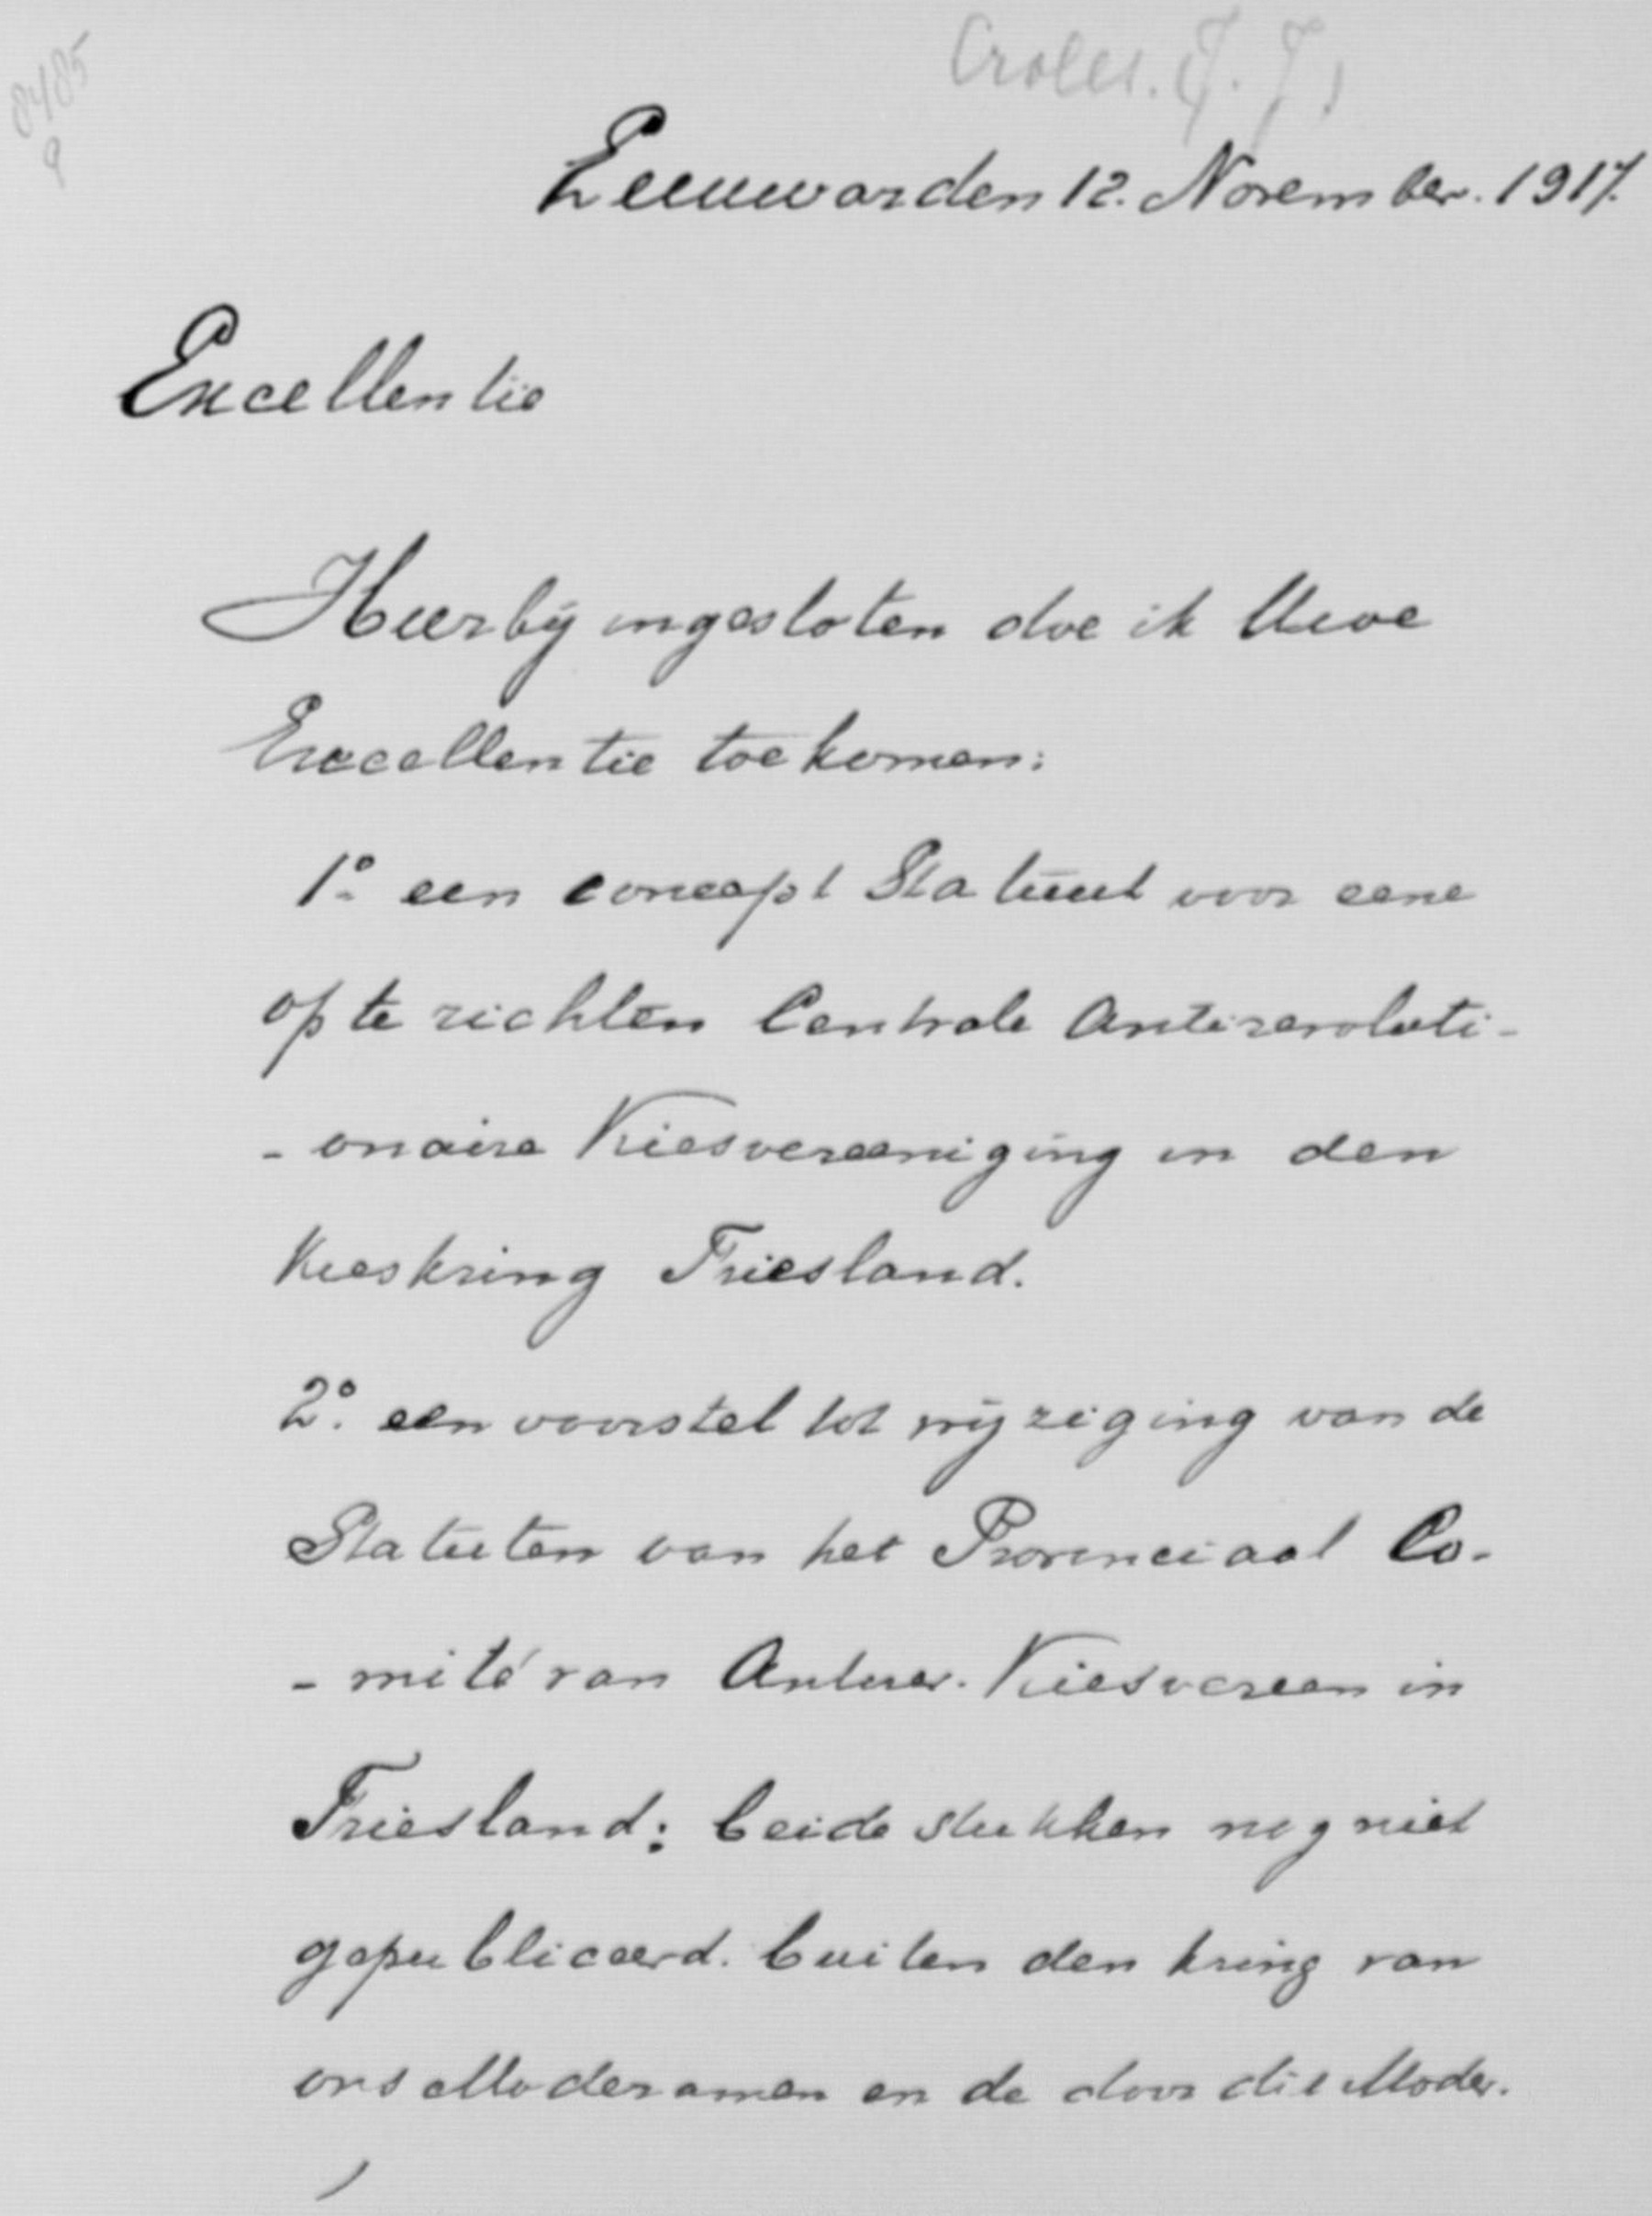 8485
9
Croles. J. J.
Leeuwarden 12. November. 1917.
Excellentie
Hierbij ingesloten doe ik Uwe
Excellentie toekomen:
1º een concept Statuut voor eene
op te richten Centrale Antirevoluti-
- onaire Kiesvereeniging in den
Kieskring Friesland.
2º. een voorstel tot wijziging van de
Statuten van het Provinciaal Co-
- mité van Antirev. Kiesvereen in
Friesland; beide stukken nog niet
gepubliceerd. buiten den kring van
ons Moderamen en de door dit Moder.